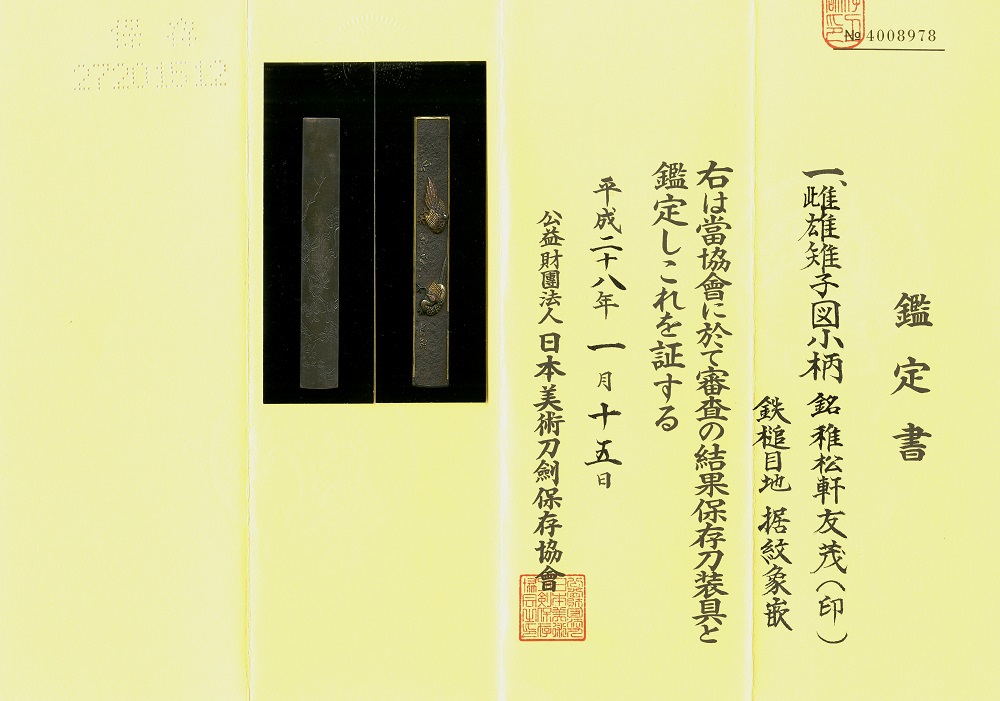 №4008978
鑑定書
一、雌雄雉子図小柄 銘 稚松軒友茂(印)
鉄槌目地 据紋象嵌
右は當協會に於て審査の結果保存刀装具と
鑑定しこれを証する
平成二十八年一月十五日
公益財團法人 日本美術刀劍保存協會
保存
27201512